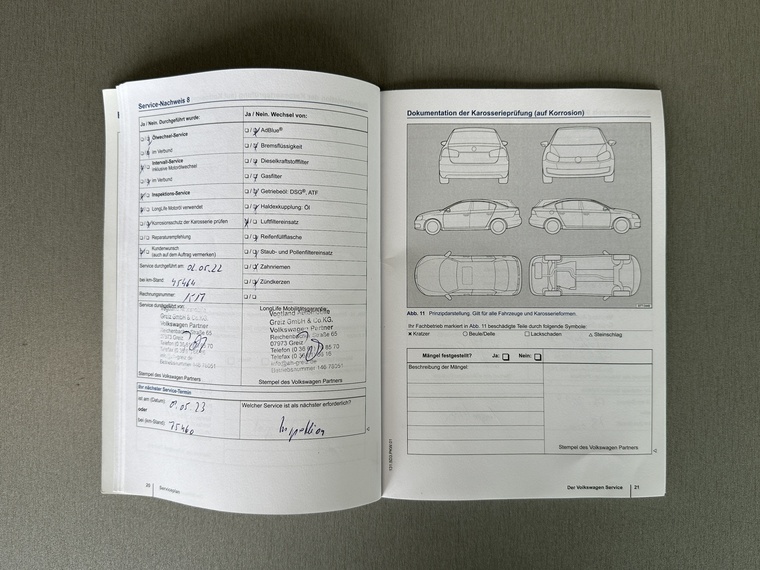 Service-Nachweis 8
Ja / Nein. Durchgeführt wurde:
Ölwechsel-Service
im Verbund
Intervall-Service
inklusive Motorölwechsel
im Verbund
Inspektions-Service
LongLife Motoröl verwendet
Korrosionsschutz der Karosserie prüfen
Reparaturempfehlung
Kundenwunsch
(auch auf dem Auftrag vermerken)
Service durchgeführt am: 02.05.22
bei km-Stand: 45464
Rechnungsnummer:
Service durchgeführt von:
Greiz GmbH & Co.KG.
Volkswagen Partner
07973 Greiz
Stempel des Volkswagen Partners
Ja / Nein. Wechsel von:
AdBlue®
Bremsflüssigkeit
Dieselkraftstofffilter
Gasfilter
Getriebeöl: DSG®, ATF
Haldexkupplung: Öl
Luftfiltereinsatz
Reifenfüllflasche
Staub- und Pollenfiltereinsatz
Zahnriemen
Zündkerzen
LongLife Mobilitätsgarantie
Greiz GmbH & Co.KG.
Volkswagen Partner
Reichenbacher Straße 65
07973 Greiz
Stempel des Volkswagen Partners
Ihr nächster Service-Termin
ist am (Datum): 05.23
oder
bei (km-Stand): 75460
Welcher Service ist als nächster erforderlich?
Inspektion
20 Serviceplan
Dokumentation der Karosserieprüfung (auf Korrosion)
Abb. 11 Prinzipdarstellung. Gilt für alle Fahrzeuge und Karosserieformen.
Ihr Fachbetrieb markiert in Abb. 11 beschädigte Teile durch folgende Symbole:
× Kratzer ○ Beule/Delle □ Lackschaden △ Steinschlag
Mängel festgestellt? Ja: Nein:
Beschreibung der Mängel:
Stempel des Volkswagen Partners
Der Volkswagen Service 21